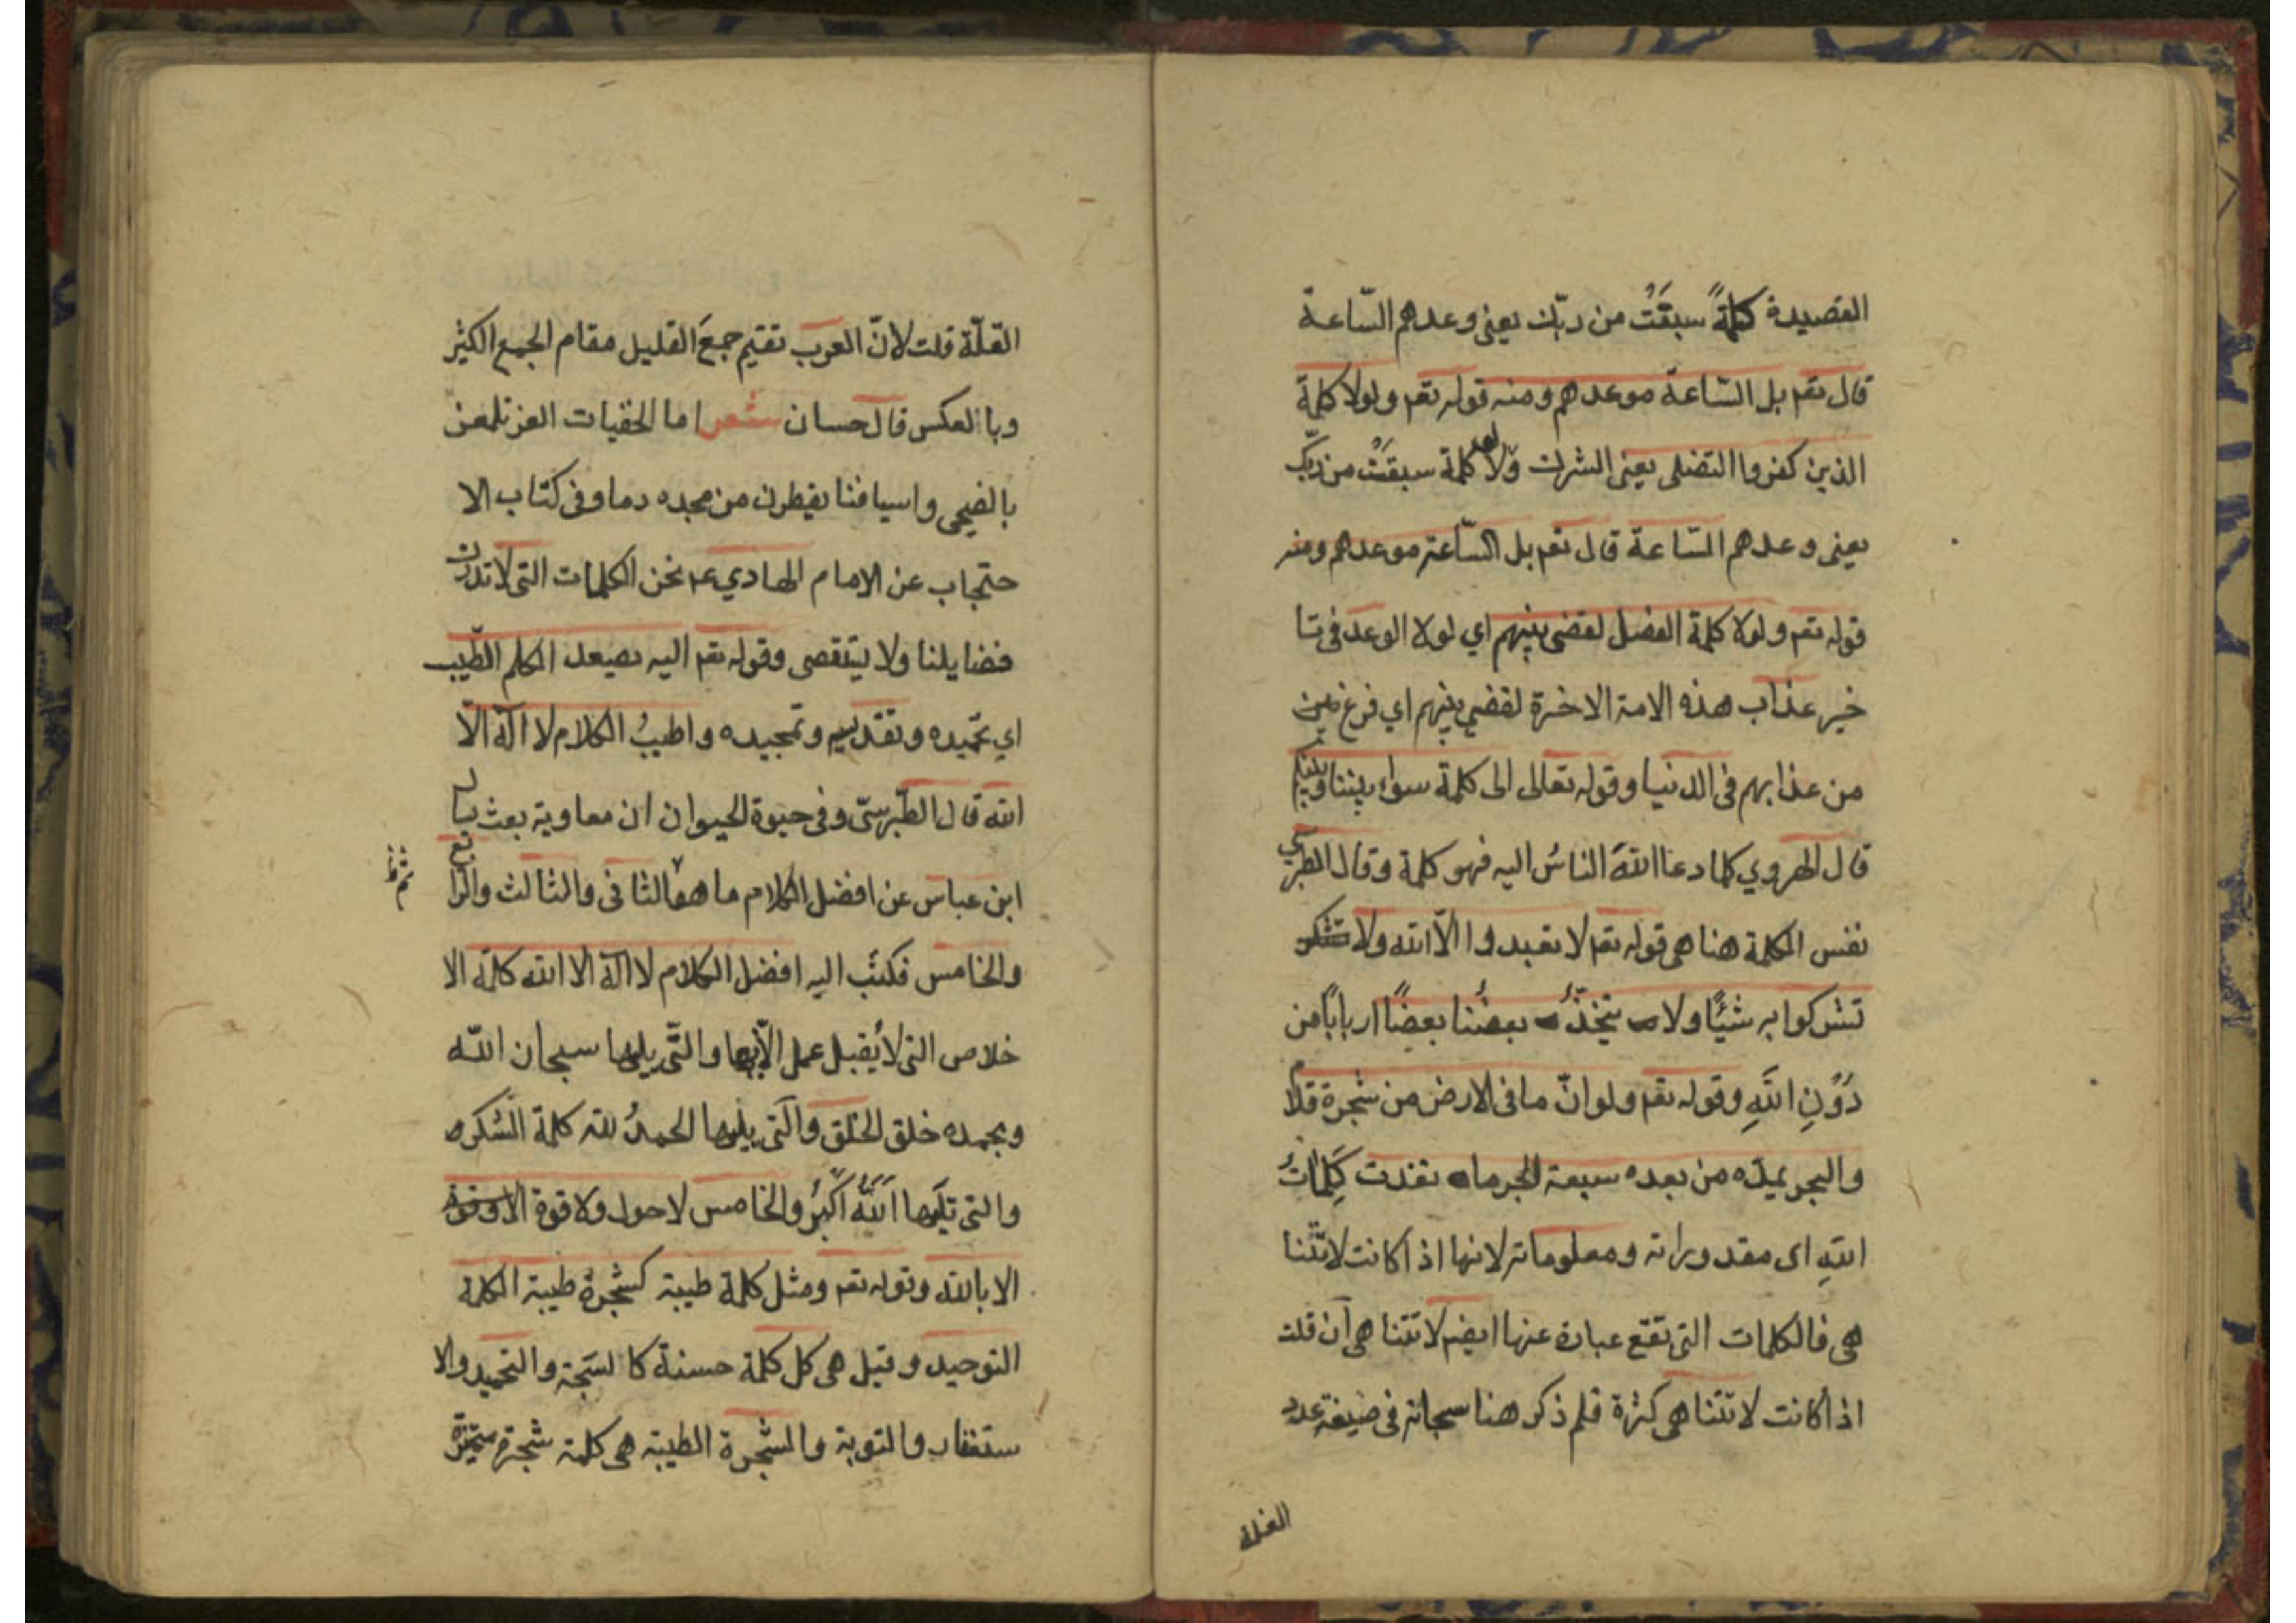 القصيدة كلمةً سبقَتْ من ربّك يعنى وعدهم السّاعة
قال تعم بل السّاعة موعدهم ومنه قوله تعم ولولا كلمة
الذين كفروا السفلى يعنى الشرك ولولا كلمة سبقَتْ من ربّك
يعنى وعدهم السّاعة قال تعم بل السّاعة موعدهم ومنه
قوله تعم ولولا كلمة الفصل لقضى بينهم اي لولا الوعد فى تا
خير عذاب هذه الامة الاخرة لقضى بينهم اي فرغ من
من عذابهم فى الدنيا وقوله تعالى الى كلمة سواء بيننا وبينكم
قال الهروي كلما دعا اللهَ الناسُ اليه فهو كلمة وقال الطبرسي
نفس الكلمة هنا هى قوله تعم لا تعبدوا الاّ الله ولا
تشركوا به شيئًا ولا يتخذُ بعضُنا بعضًا اربابًا من
دُونِ اللَّهِ وقوله تعم ولو انّ ما فى الارض من شجرة اقلام
والبحر يمدّه من بعده سبعة ابحر ما نفدت كَلِمَاتُ
اللهِ اى مقدوراته ومعلوماته لانها اذا كانت لا تتنا
هى فالكلمات التى تقع عبارة عنها ايضم لا تتناهى آن قلت
اذا كانت لا تتناهى كثرة فلم ذكر هنا سبحانه فى صيغة عدد
القلة
القلّة قلت لانّ العرب تقيم جمعَ القليل مقام الجمع الكثير
وبالعكس قال حسان شعر اما الجفنات الغر تلمعن
بالضحى واسيافنا يقطرن من مجده دما وفى كتاب الا
حتجاب عن الامام الهادي ع نحن الكلمات التى لا تدرك
فضايلنا ولا يتقصى وقوله تعم اليه يصعد الكلم الطّيب
اي تحميده وتقديسه وتمجيده واطيبُ الكلام لا اله الاّ
الله قال الطّبرسىّ وفى حيوة الحيوان ان معاوية بعث يسال
ابن عباس عن افضل الكلام ما هو والثانى والثالث والرابع
ثم ظ
والخامس فكتَب اليه افضل الكلام لا اله الا الله كلمة الا
خلاص التى لا يُقبل عمل الاّ بها والتّى يليها سبحان اللّه
وبحمده خلق الخلق والّتى يليها الحمدُ لله كلمة الشكر
والتى تليها اَللَّهُ اَكْبَرُ والخامس لا حول ولا قوة
الا بالله وقوله تعم ومثل كلمة طيبة كشجرة طيبة الكلمة
التوحيد وقيل هى كل كلمة حسنة كالسبحة والتحميد والا
ستغفار والتوبة والشجرة الطيبة هى كلمة شجرة مثمرة